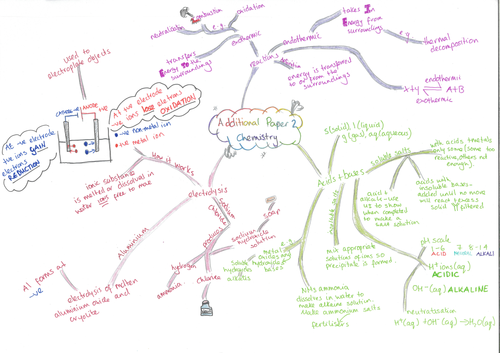 Additional Paper 2
Chemistry
reactions
exothermic
neutralisation
Combustion
oxidation
transfers
Energy To the
surroundings
endothermic
takes In
Energy from
surroundings
e.g.
thermal
decomposition
energy is transferred
to or from the
surroundings
X+Y
endothermic
A+B
exothermic
Acids + bases
s(solid) l(liquid)
g(gas) aq(aqueous)
soluble salts
with acids +metals
only some(some too
reactive, others not
enough)
acids with
insoluble bases-
added until no more
will react & excess
solid filtered
acid +
alkali - use
to show
when completed
to make a
salt solution
mix appropriate
solutions of ions so
precipitate is formed.
pH scale
1-6
7
8-14
ACID
NEUTRAL
ALKALI
H+ ions (aq)
ACIDIC
OH- (aq) ALKALINE
neutralisation
H+(aq) + OH-(aq) → H2O(aq)
metal
oxides and
hydroxides
bases
Soluble hydroxides
alkalis
NH3 ammonia
dissolves in water to
make alkaline solution.
Make ammonium salts
fertilisers
electrolysis
how it works
ionic substance
is melted or dissolved in
water ions free to move
used to
electroplate objects
At +ve electrode
-ve ions lose electrons
OXIDATION
At -ve electrode
+ve ions GAIN
electrons
REDUCTION
-ve non metal ion
+ve metal ion
Aluminium
Al forms at
-ve
electrolysis of molten
aluminium oxide and
cryolite
sodium
chloride
products
hydrogen
ammonia
chlorine
sodium
hydroxide
solution
soap